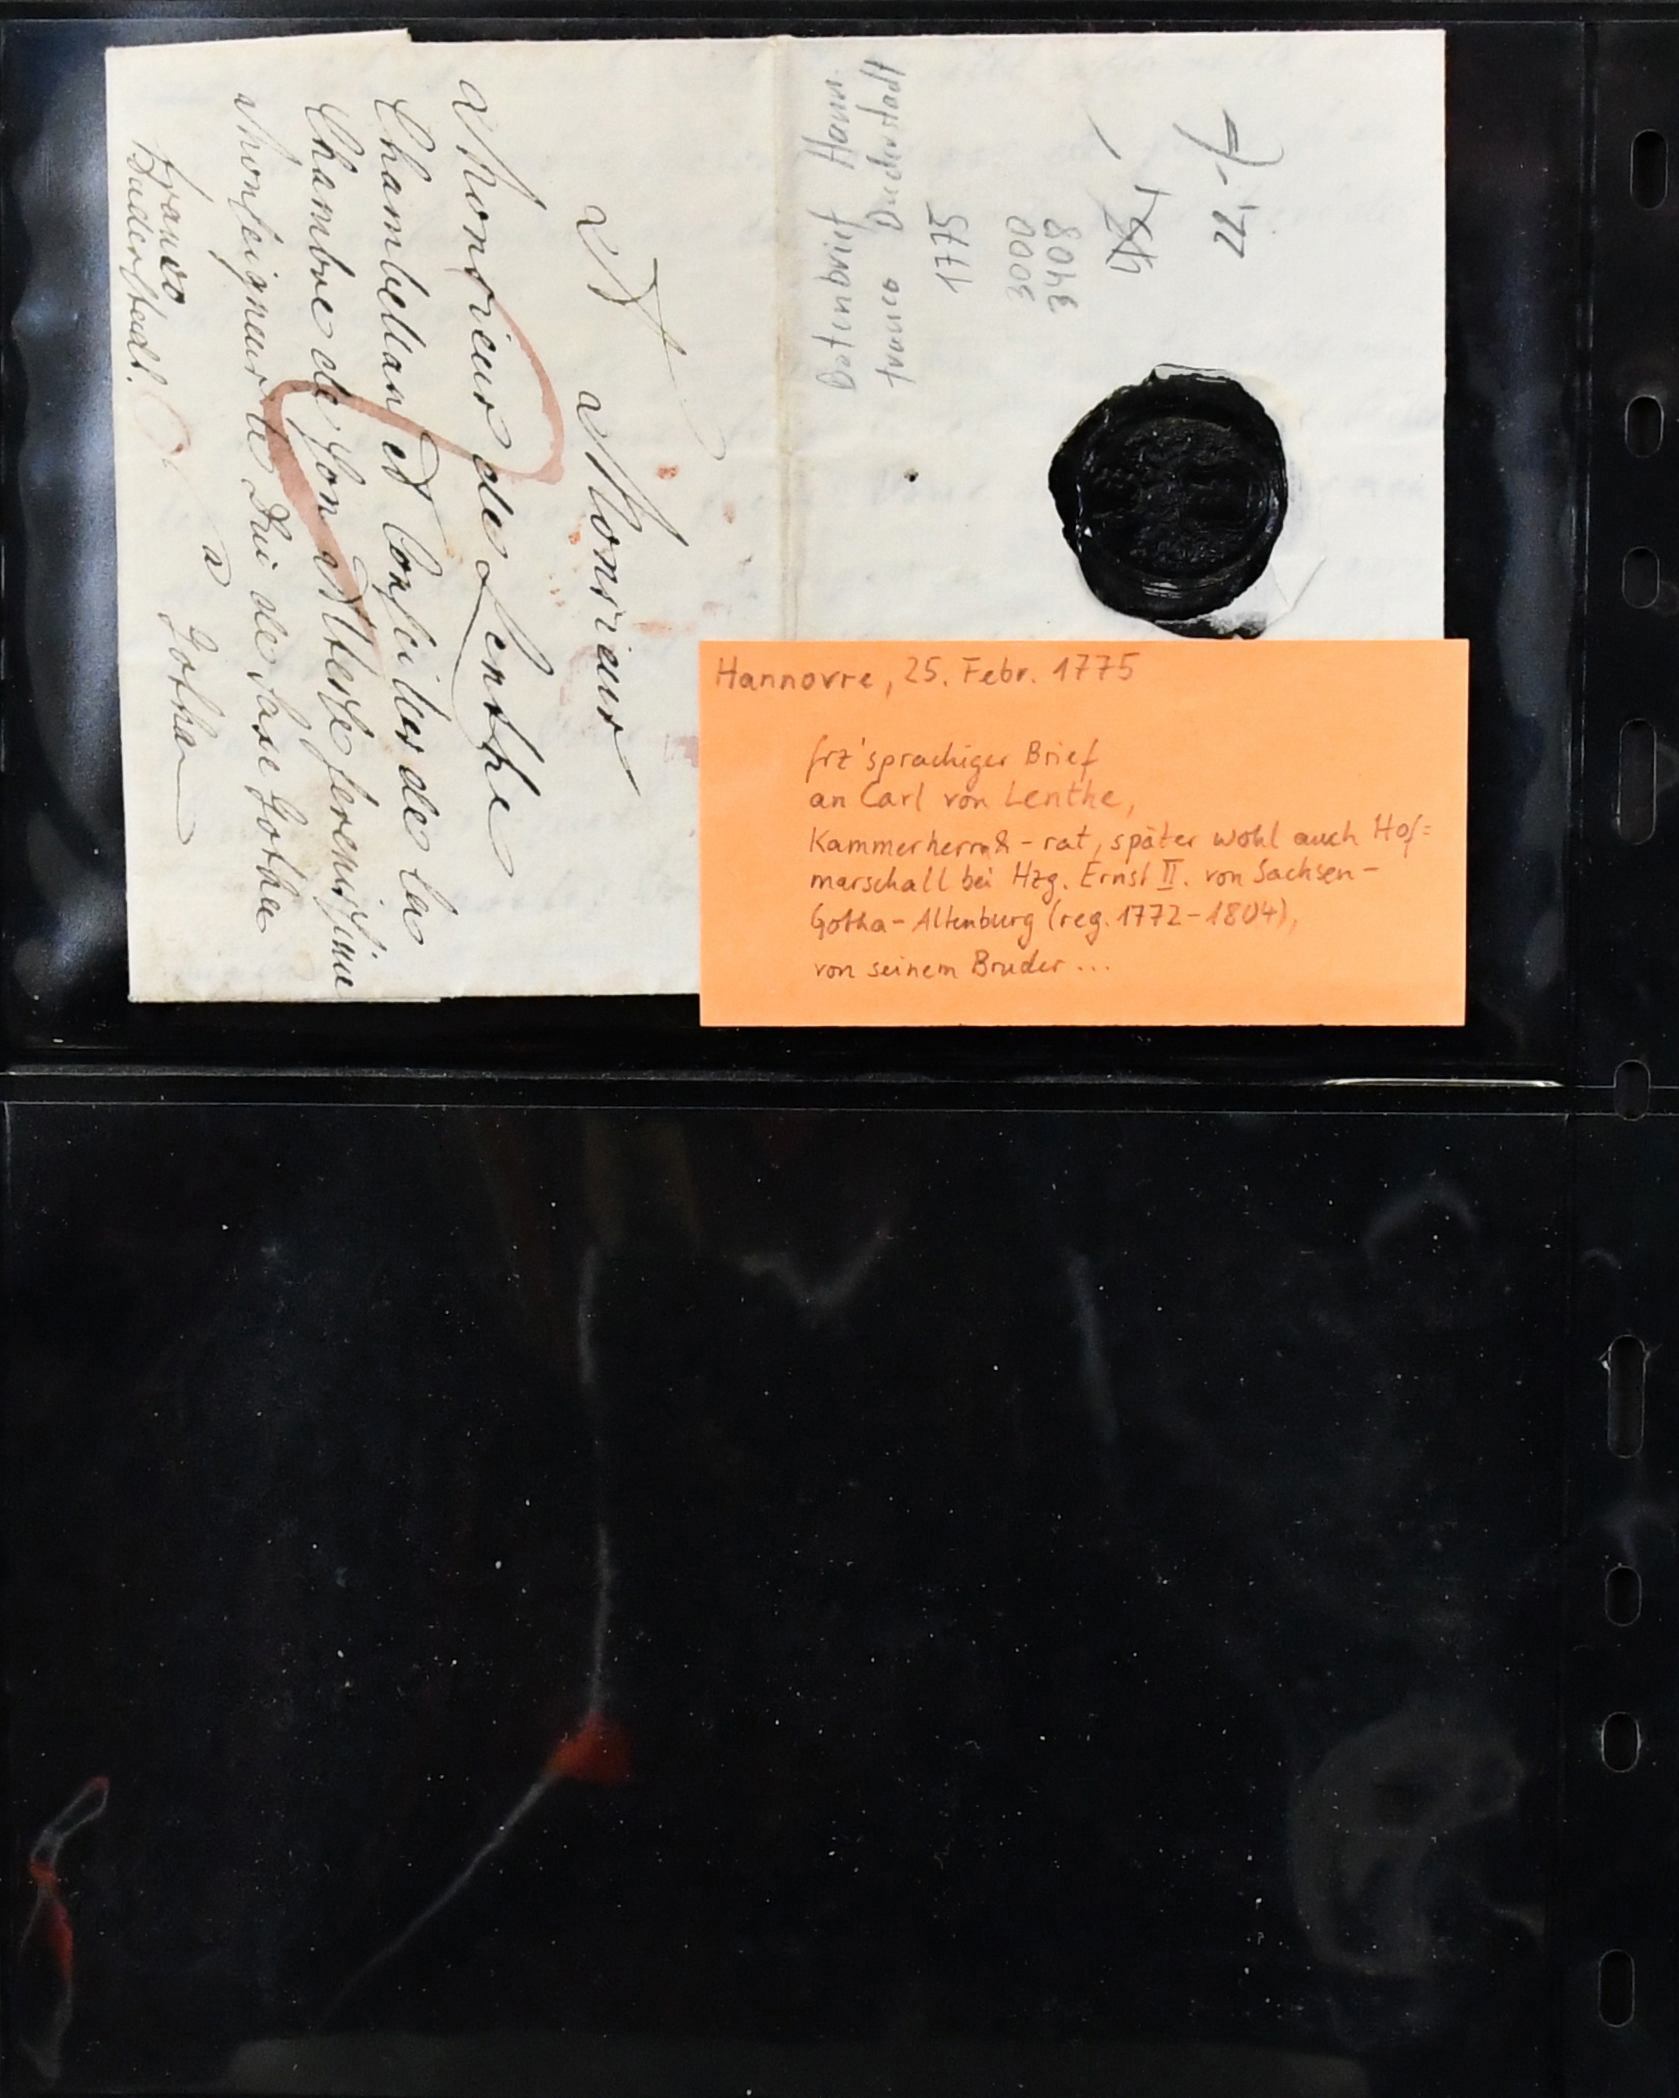 A Monsieur
Monsieur de Lenthe
Chambellan et Conseiller de la
Chambre de Son Altesse Serenissime
Monseigneur le Duc de Saxe Gotha
a Gotha
franco
Duderstadt.
Botenbrief Hann.
franco Duderstadt
1775
3000
3408
Hannovre, 25. Febr. 1775
frz'sprachiger Brief
an Carl von Lenthe,
Kammerherr & -rat, später wohl auch Hof=
marschall bei Hzg. Ernst II. von Sachsen-
Gotha-Altenburg (reg. 1772-1804),
von seinem Bruder ...